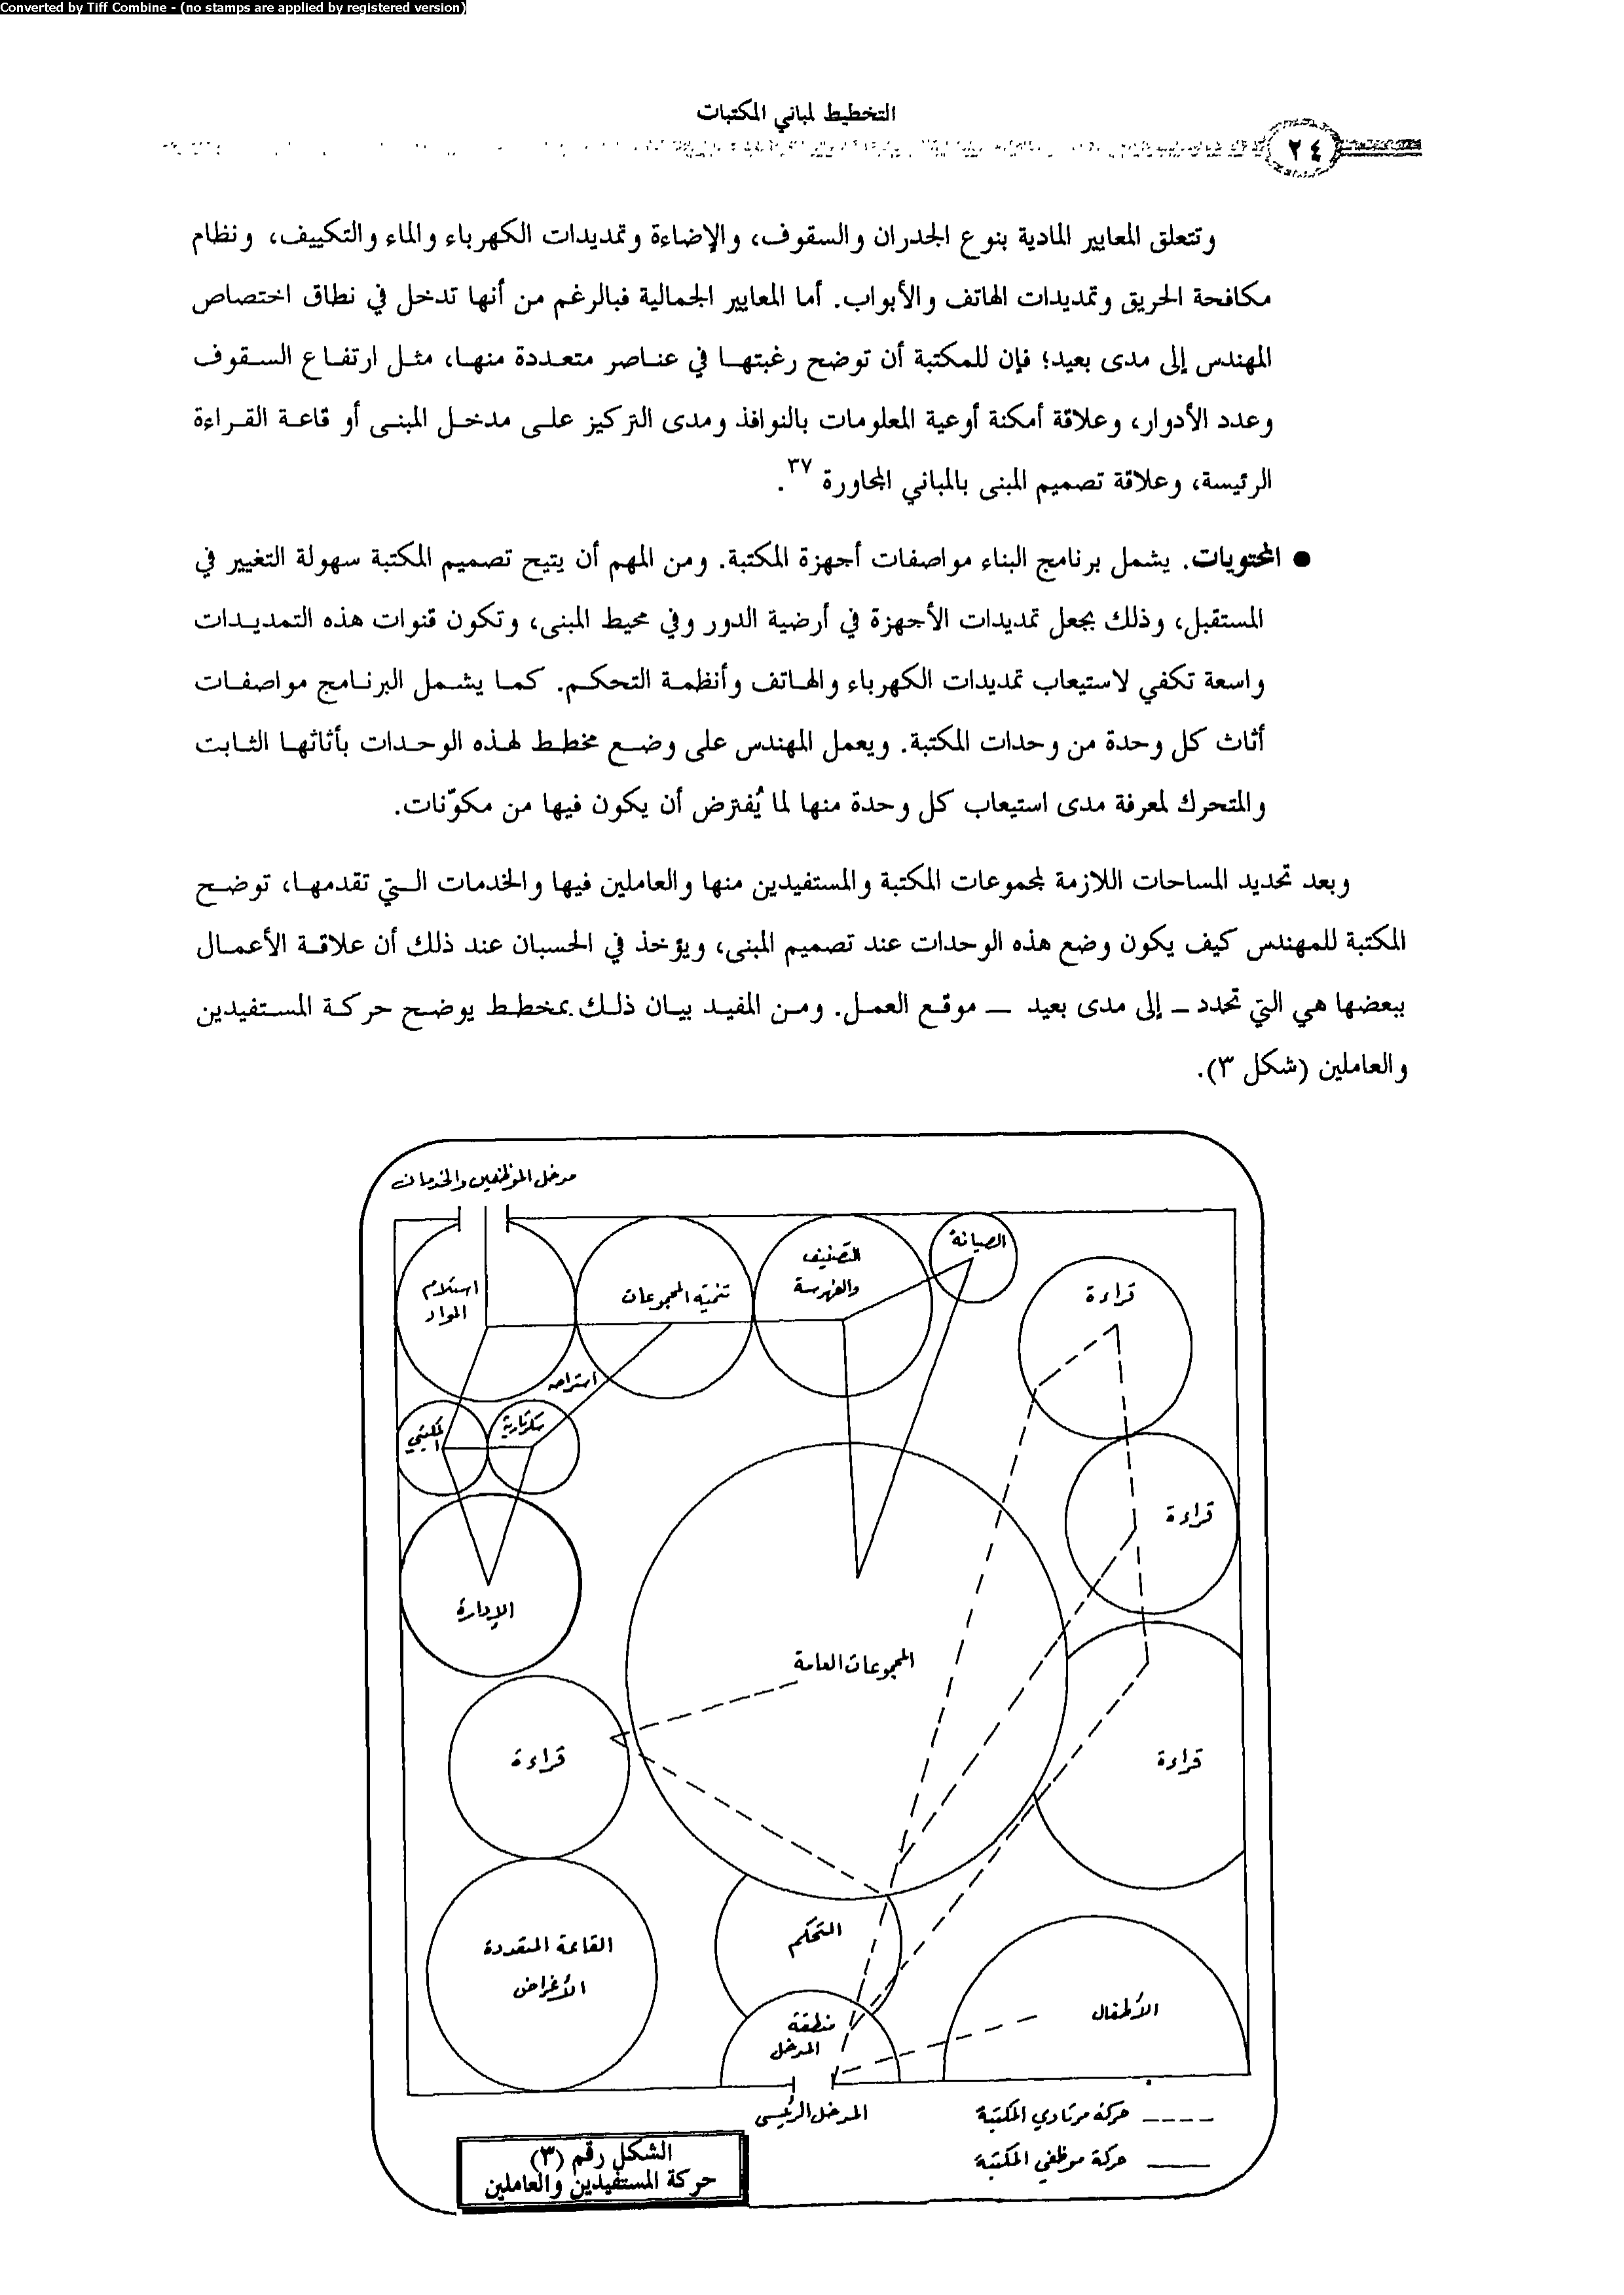 Converted by Tiff Combine - (no stamps are applied by registered version)
التخطيط لمباني المكتبات
٢٤
وتتعلق المعايير المادية بنوع الجدران والسقوف، والإضاءة وتمديدات الكهرباء والماء والتكييف، ونظام
مكافحة الحريق وتمديدات الهاتف والأبواب. أما المعايير الجمالية فبالرغم من أنها تدخل في نطاق اختصاص
المهندس إلى مدى بعيد؛ فإن للمكتبة أن توضح رغبتها في عناصر متعددة منها، مثل ارتفاع السقوف
وعدد الأدوار، وعلاقة أمكنة أوعية المعلومات بالنوافذ ومدى التركيز على مدخل المبنى أو قاعة القراءة
الرئيسة، وعلاقة تصميم المبنى بالمباني المجاورة ٣٧.
● المحتويات. يشمل برنامج البناء مواصفات أجهزة المكتبة. ومن المهم أن يتيح تصميم المكتبة سهولة التغيير في
المستقبل، وذلك بجعل تمديدات الأجهزة في أرضية الدور وفي محيط المبنى، وتكون قنوات هذه التمديدات
واسعة تكفي لاستيعاب تمديدات الكهرباء والهاتف وأنظمة التحكم. كما يشمل البرنامج مواصفات
أثاث كل وحدة من وحدات المكتبة. ويعمل المهندس على وضع مخطط لهذه الوحدات بأثاثها الثابت
والمتحرك لمعرفة مدى استيعاب كل وحدة منها لما يُفترض أن يكون فيها من مكوّنات.
وبعد تحديد المساحات اللازمة لمجموعات المكتبة والمستفيدين منها والعاملين فيها والخدمات التي تقدمها، توضح
المكتبة للمهندس كيف يكون وضع هذه الوحدات عند تصميم المبنى، ويؤخذ في الحسبان عند ذلك أن علاقة الأعمال
ببعضها هي التي تحدد – إلى مدى بعيد – موقع العمل. ومن المفيد بيان ذلك بمخطط يوضح حركة المستفيدين
والعاملين (شكل ٣).
مدخل الموظفين والخدمات
الصيانة
التصنيف
والفهرسة
تنمية المجموعات
استلام
المواد
قراءة
استراحة
سكرتارية
المكتبي
قراءة
الإدارة
المجموعات العامة
قراءة
قراءة
المتحكم
القاعة المتعددة
الأغراض
الأطفال
منطقة
المدخل
المدخل الرئيسي
حركة مرتادي المكتبة
حركة موظفي المكتبة
الشكل رقم (٣)
حركة المستفيدين والعاملين